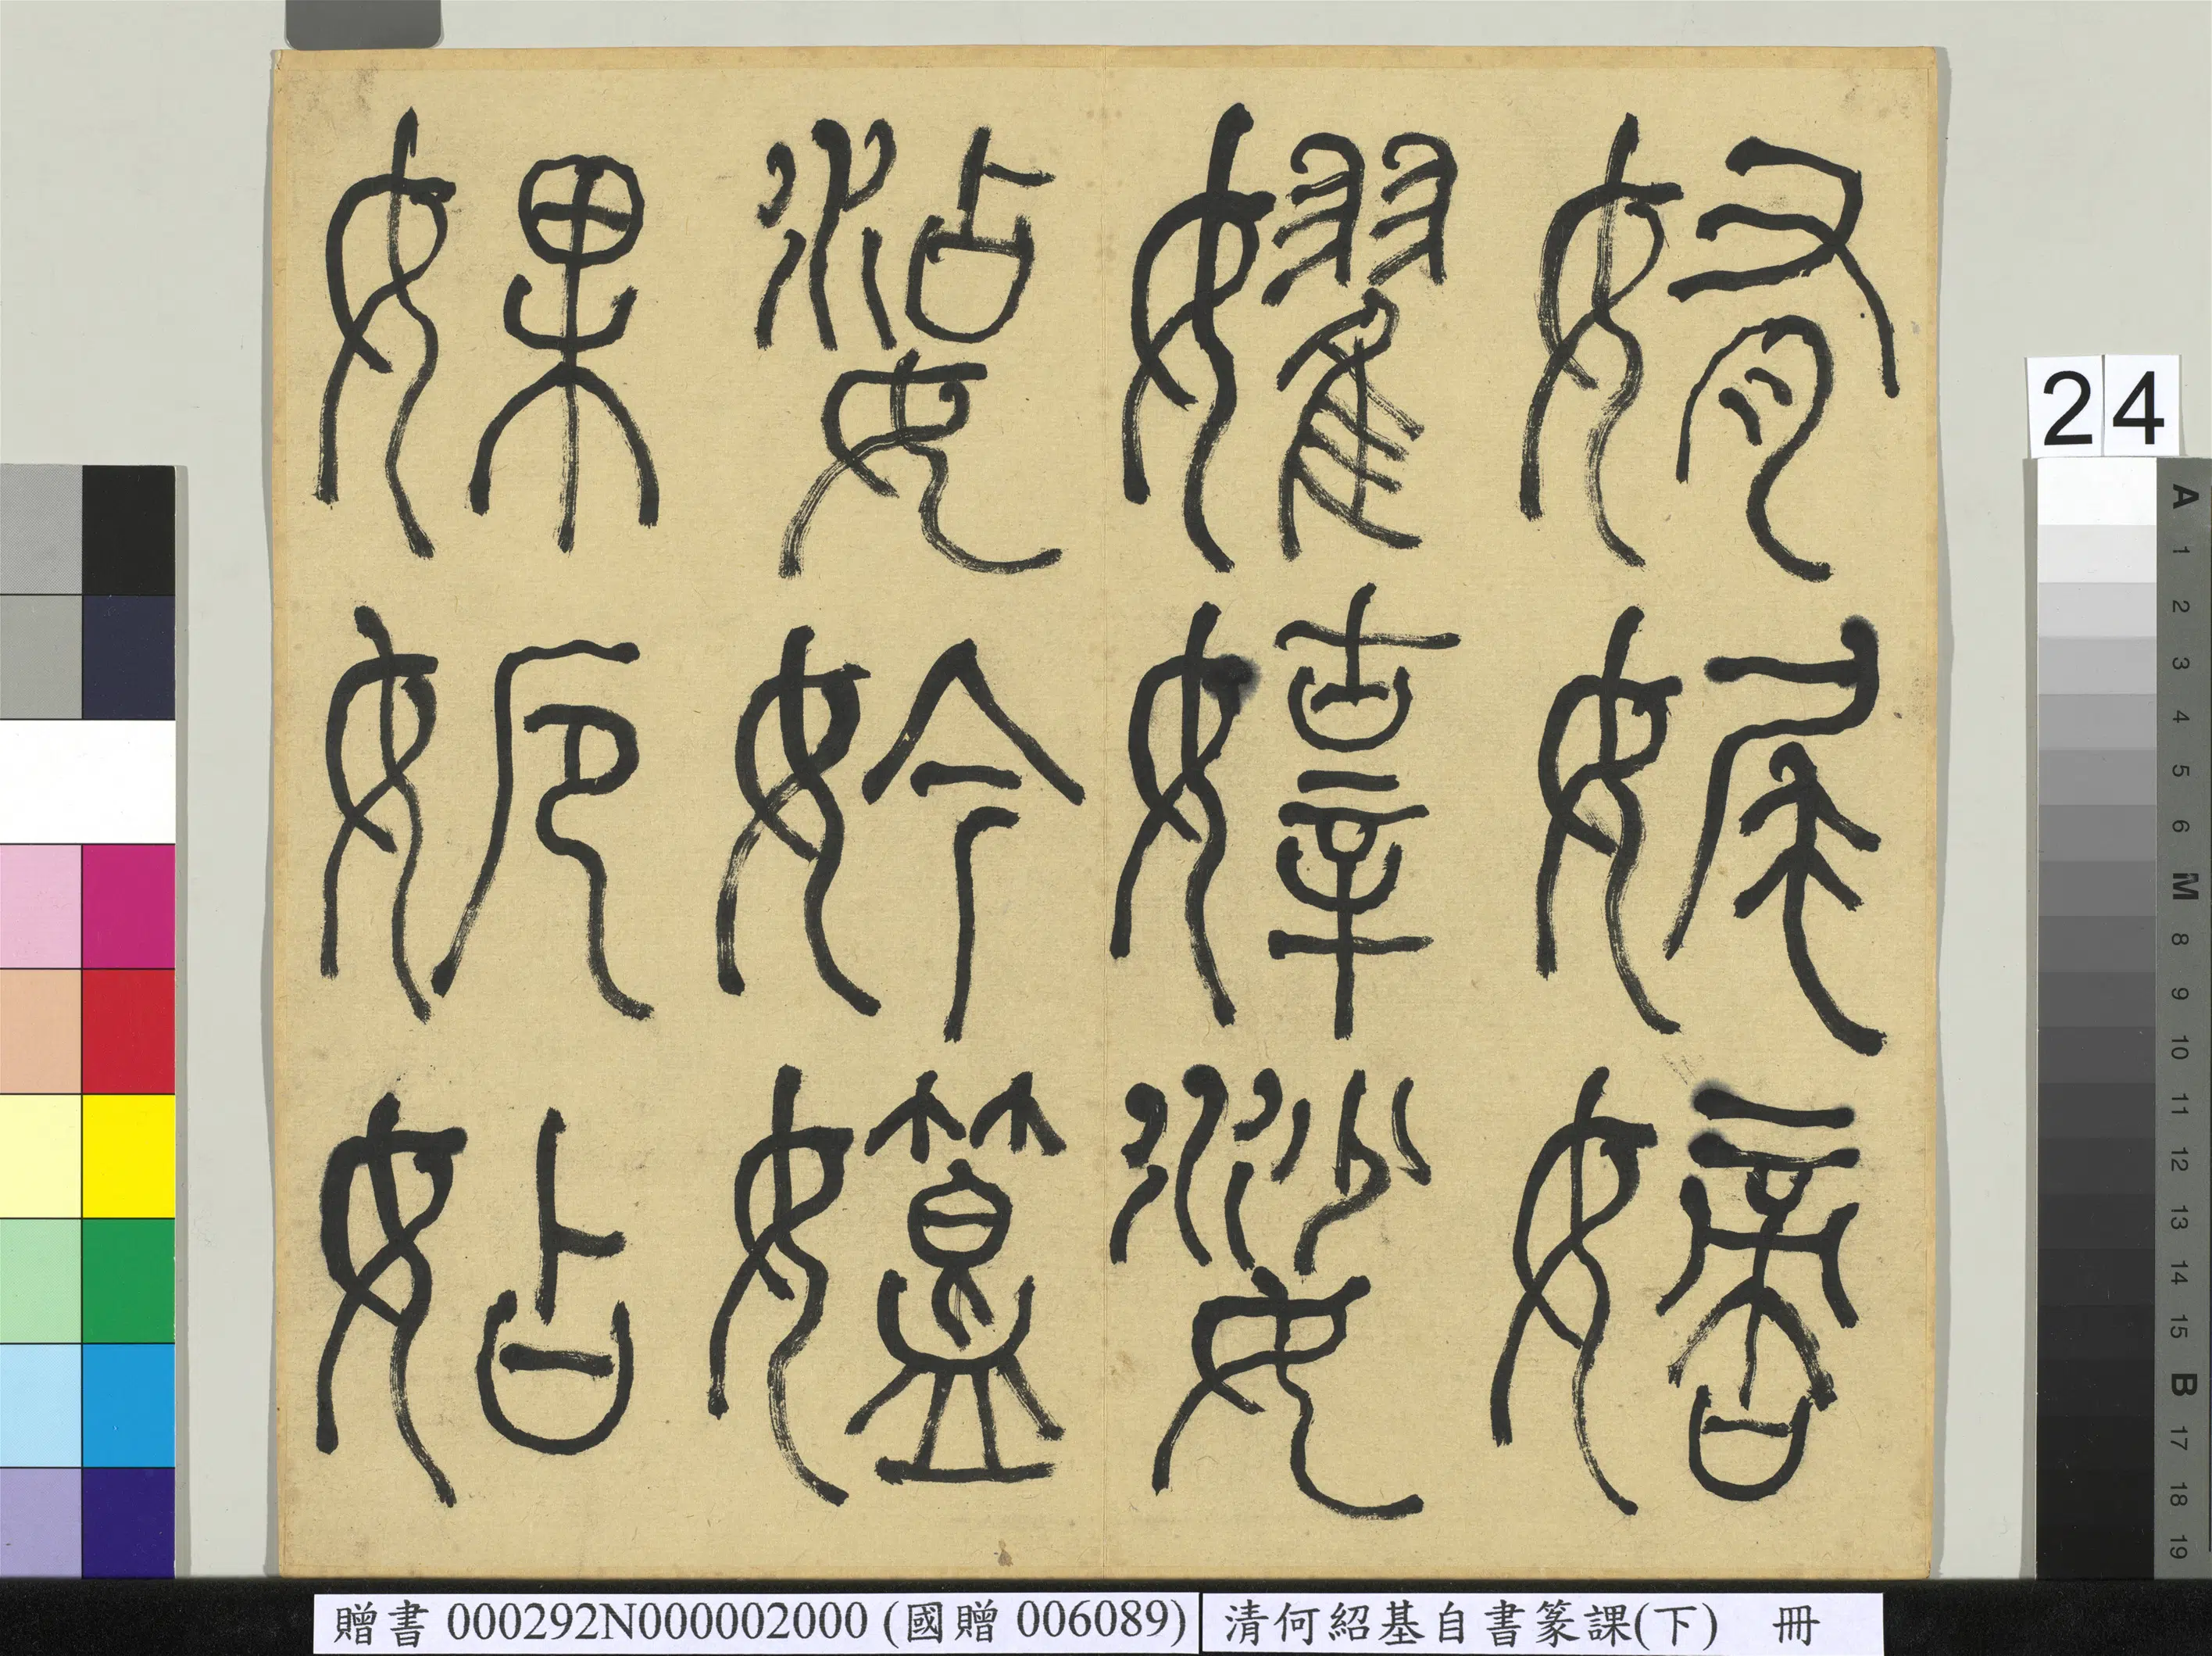 姷
嫡
嬥嫴娑
妗
婐㛂㚲
24
A 1 2 3 4 5 6 M 8 9 10 11 12 13 14 15 B 17 18 19
贈書 000292N000002000 (國贈 006089)
清何紹基自書篆課(下) 冊